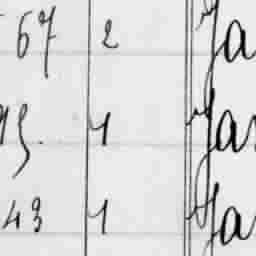 67 2 Ja
93. 1 Ja
43 1 Ja